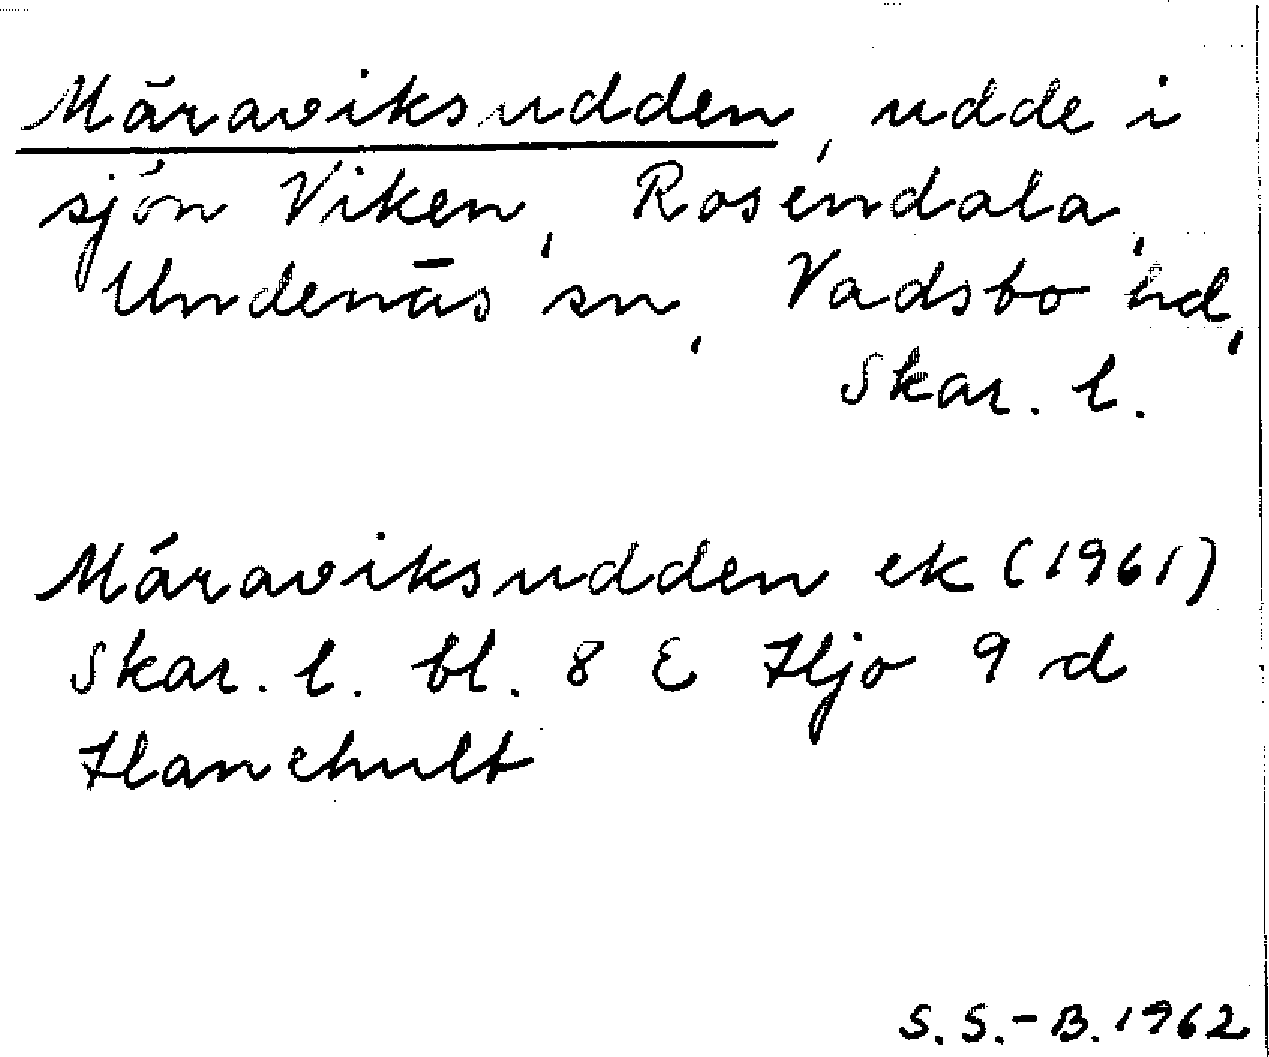 Märaviksudden, udde i
sjön Viken, Rosendala,
Undenäs sn, Vadsbo hd,
Skar. l.
Märaviksudden ek (1961)
Skar. l. bl. 8 E Hjo 9 d
Hanchult
S. S.-B. 1962